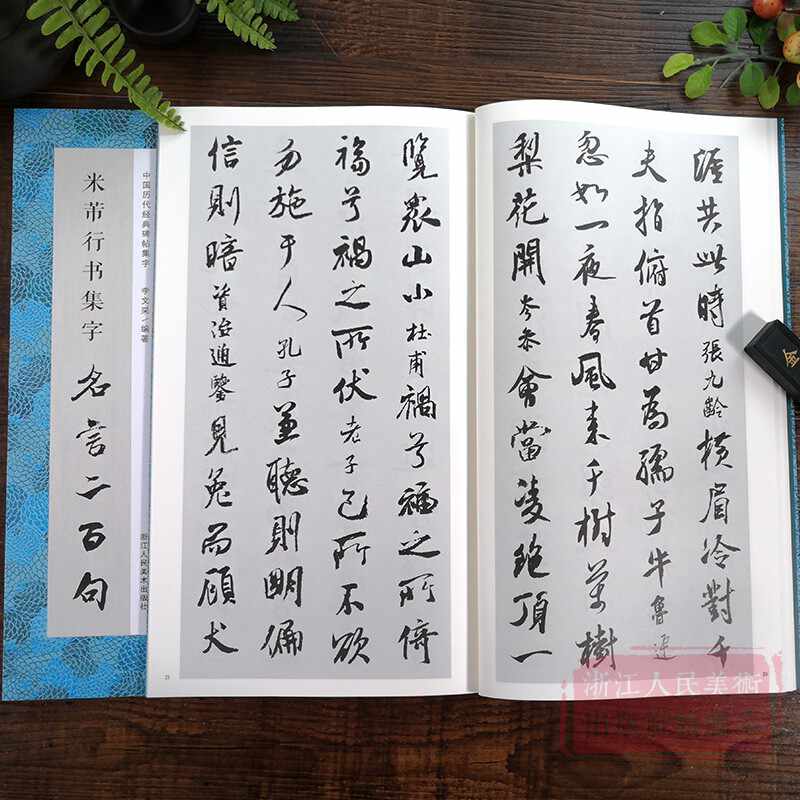 中国历代经典碑帖集字 李文采/编著
米芾行书集字 名言二百句
浙江人民美术出版社
涯共此時張九齡橫眉冷對千
夫指俯首甘為孺子牛魯迅
忽如一夜春風來千樹萬樹
梨花開岑參會當凌絕頂一
覽衆山小杜甫禍兮福之所倚
福兮禍之所伏老子己所不欲
勿施于人孔子兼聽則明偏
信則暗資治通鑒見兔而顧犬
21
金
浙江人民美術